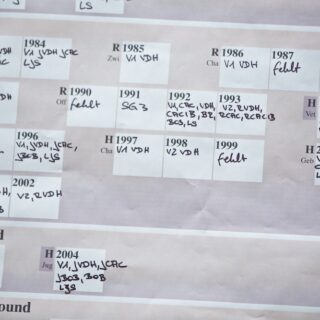 LJS
1984
V1 JVDH, JCAC
LJS
R 1985
Zwi V1 VDH
R 1986
Cha V1 VDH
1987
fehlt
VDH
R 1990
Off fehlt
1991
SG3
1992
V1, CAC, VDH,
CACIB, BR,
BOS, LS
1993
V2, RVDH,
RCAC, RCACIB
H
Vet
1996
V1, JVDH, JCAC,
JBOB, LJS
H 1997
Cha V1 VDH
1998
V2 VDH
1999
fehlt
H
Geb
2002
V2, RVDH
H 2004
Jug V1, JVDH, JCAC
JBOB, BOB
LJS
ound